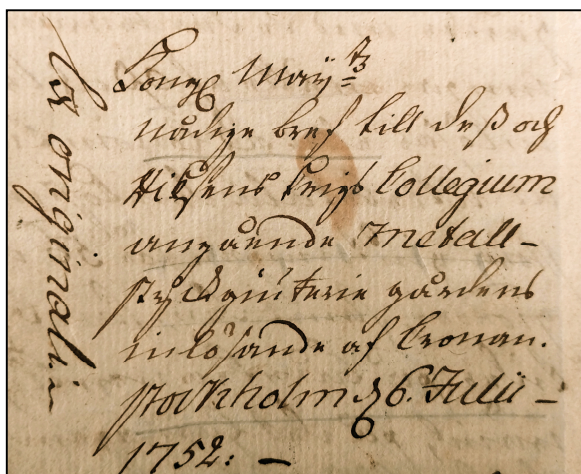 Ex originali.
Kongl May:tz
nådige bref till dess och
Riksens Krigs Collegium
angående Metall-
styckgiuterie gårdens
inlösande af Cronan.
Stockholm d 6. Julii -
1752: -